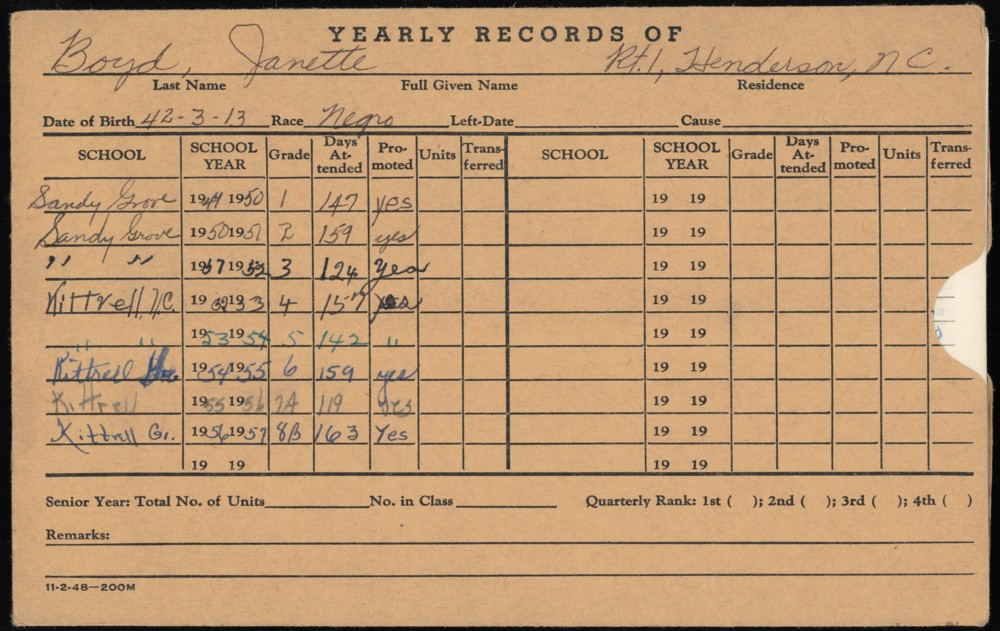 YEARLY RECORDS OF
Boyd, Janette Rt.1, Henderson, N.C.
Last Name Full Given Name Residence
Date of Birth 42-3-13 Race Negro Left-Date Cause
SCHOOL SCHOOL YEAR Grade Days Attended Promoted Units Transferred SCHOOL SCHOOL YEAR Grade Days Attended Promoted Units Transferred
Sandy Grove 1949 1950 1 147 yes 19 19
Sandy Grove 1950 1951 2 159 yes 19 19
" " 1951 1952 3 124 Yes 19 19
Kittrell, N.C. 1952 1953 4 157 yes 19 19
" " 1953 1954 5 142 " 19 19
Kittrell 1954 1955 6 159 yes 19 19
Kittrell 1955 1956 7A 119 Yes 19 19
Kittrell Gr. 1956 1957 8B 163 Yes 19 19
19 19 19 19
Senior Year: Total No. of Units No. in Class Quarterly Rank: 1st ( ); 2nd ( ); 3rd ( ); 4th ( )
Remarks:
11-2-48—200M